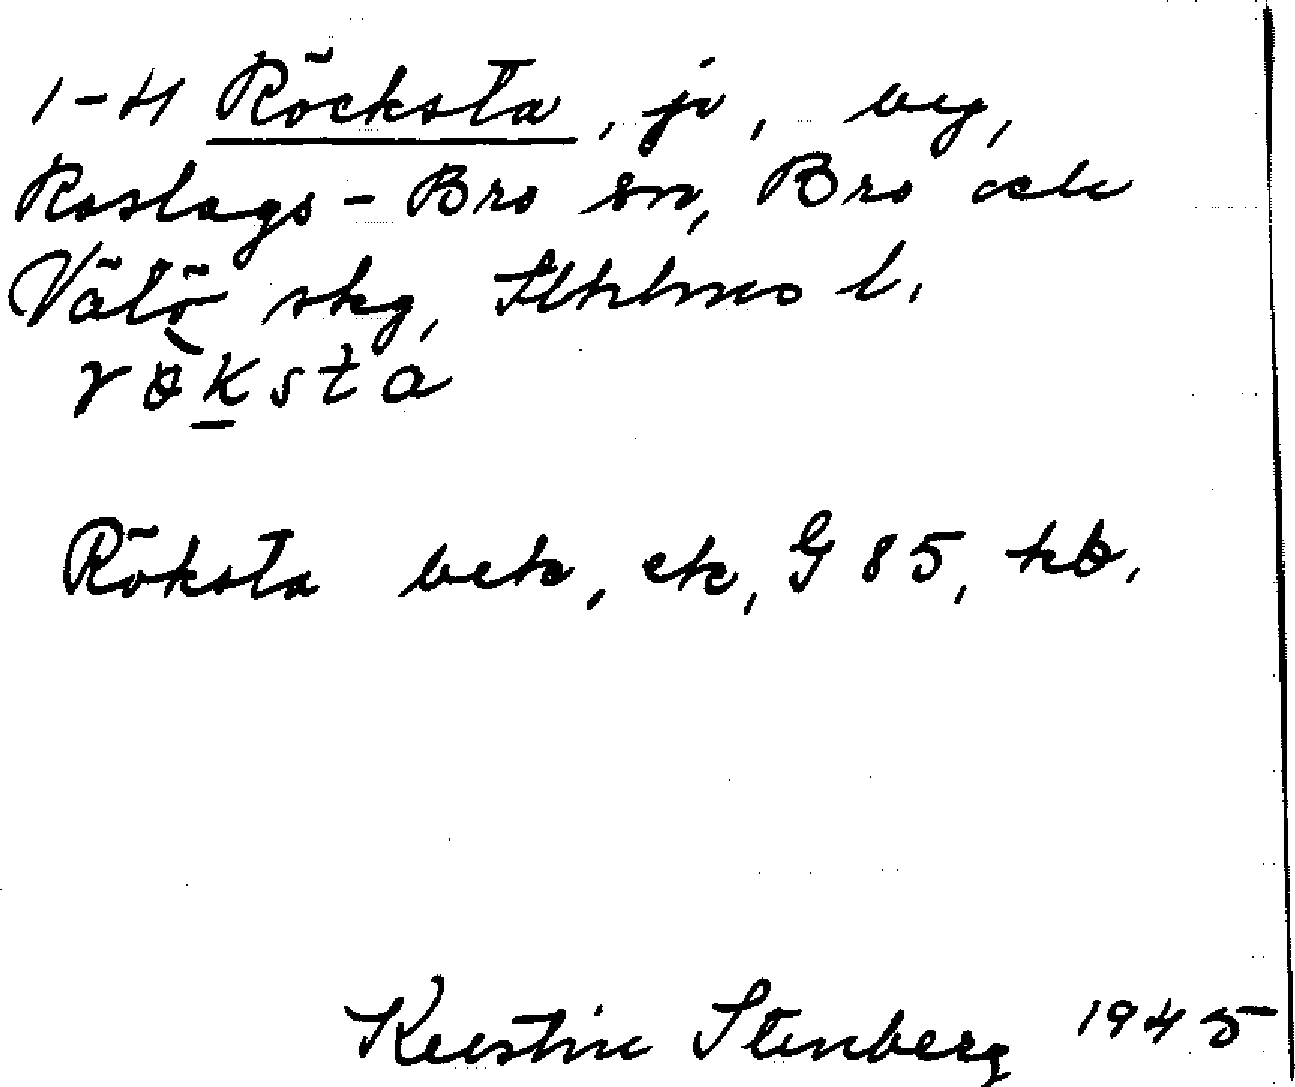 1-4 Röcksta, jr, by,
Roslags-Bro sn, Bro och
Vätö skg, Sthlms l.
röksta
Röksta bek, ek, G 85, kb.
Kerstin Stenberg 1945